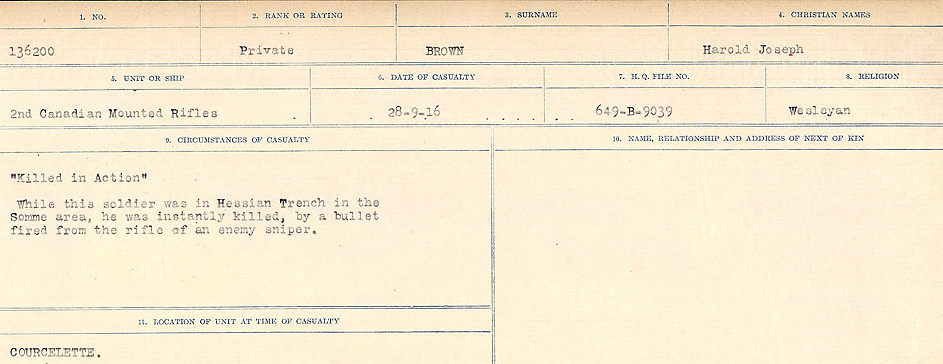 1. NO.
2. RANK OR RATING
3. SURNAME
4. CHRISTIAN NAMES
136200
Private
BROWN
Harold Joseph
5. UNIT OR SHIP
6. DATE OF CASUALTY
7. H.Q. FILE NO.
8. RELIGION
2nd Canadian Mounted Rifles
28-9-16
649-B-9039
Wesleyan
9. CIRCUMSTANCES OF CASUALTY
10. NAME, RELATIONSHIP AND ADDRESS OF NEXT OF KIN
"Killed in Action"
While this soldier was in Hessian Trench in the
Somme area, he was instantly killed, by a bullet
fired from the rifle of an enemy sniper.
11. LOCATION OF UNIT AT TIME OF CASUALTY
COURCELETTE.